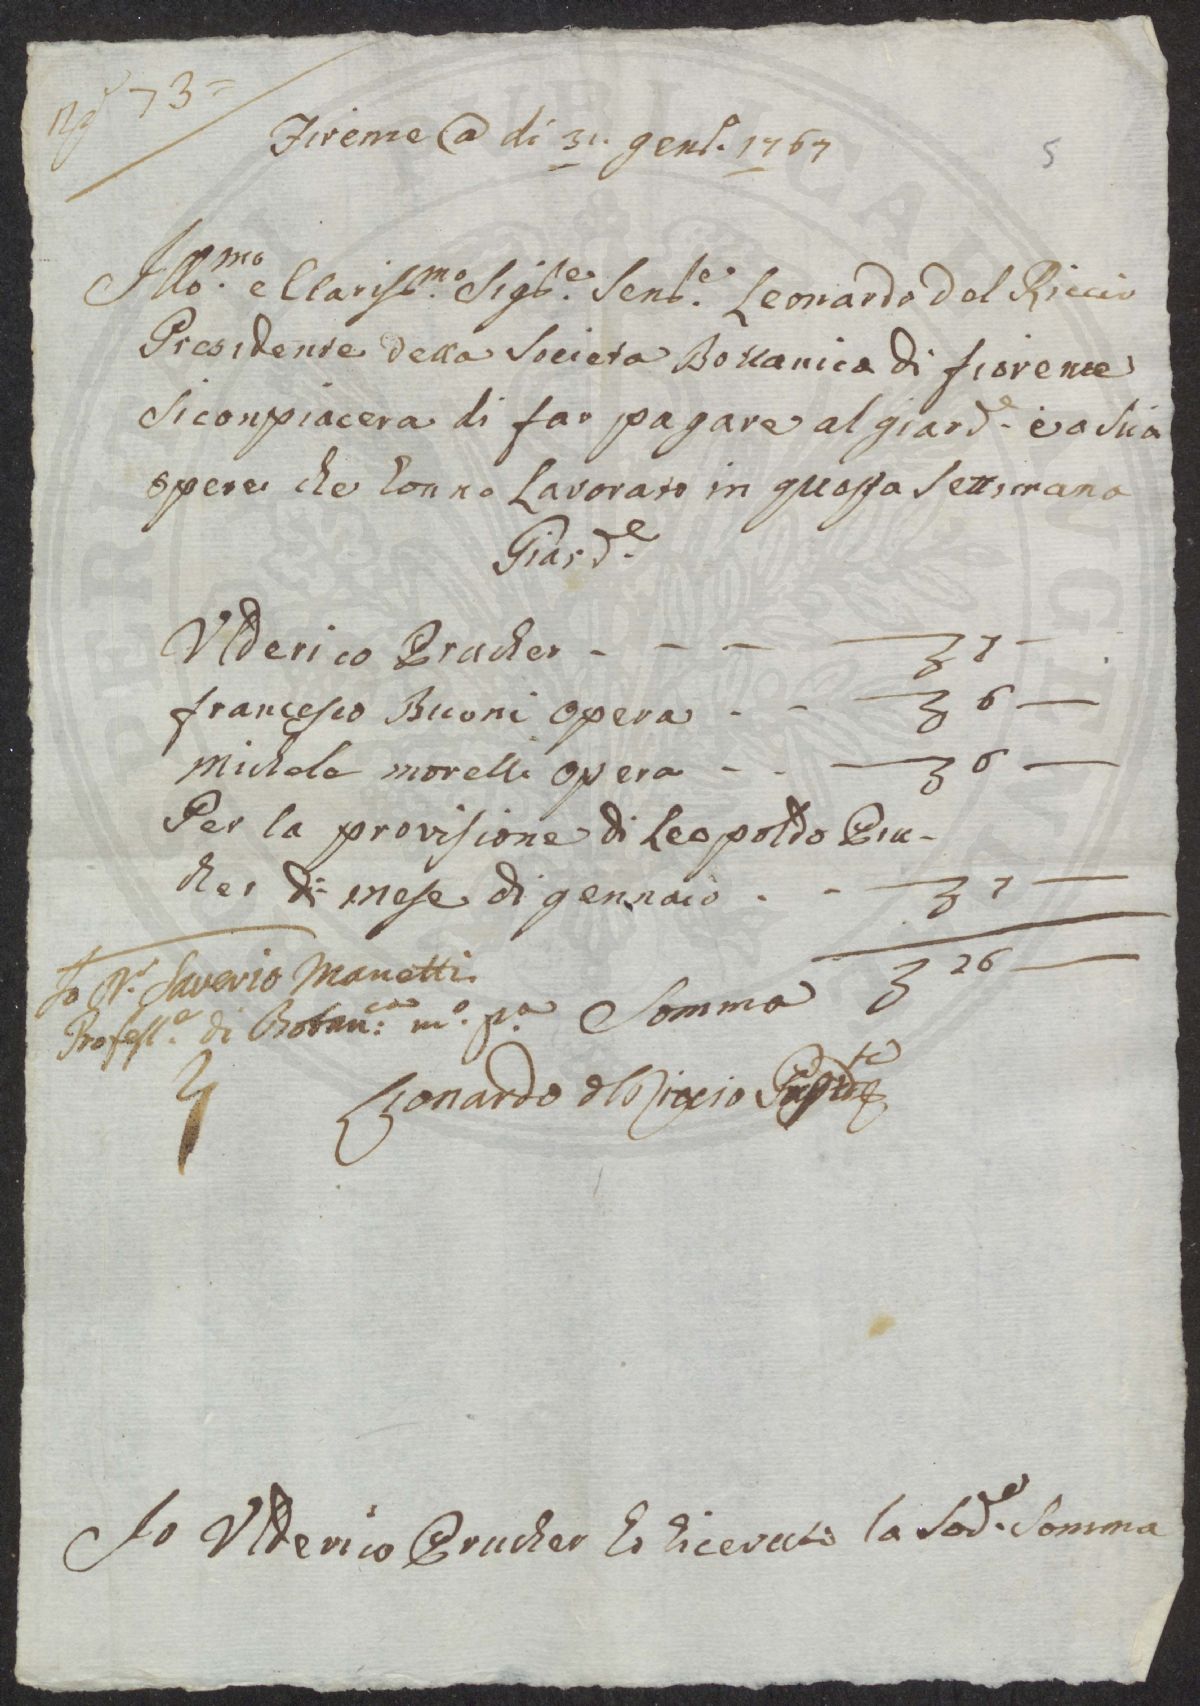 N.º 73=
Firenze @ dì 31. gen.º 1767
5
Illo.mo e Clariss.mo Sig.re Sen.re Leonardo Del Riccio
Presidente della Societa Bottanica di fiorenze
Si conpiacera di far pagare al giard.e e a Sua
opere che honno Lavorato in questa Settimana
Giard.e
Vlderico Prucher - - - 7 -
francesco Buoni opera - - 6 —
Michele morelli opera - - 6 —
Per la provisione di Leopoldo Pru-
cher di mese di gennaio . - 7 —
26 —
Io D.r Saverio Manetti
Profess.e di Botan.ca m.o p.a Somma
Leonardo del Riccio Presid.te
Io Vlderico Prucher ho ricevuto la Sod.a Somma